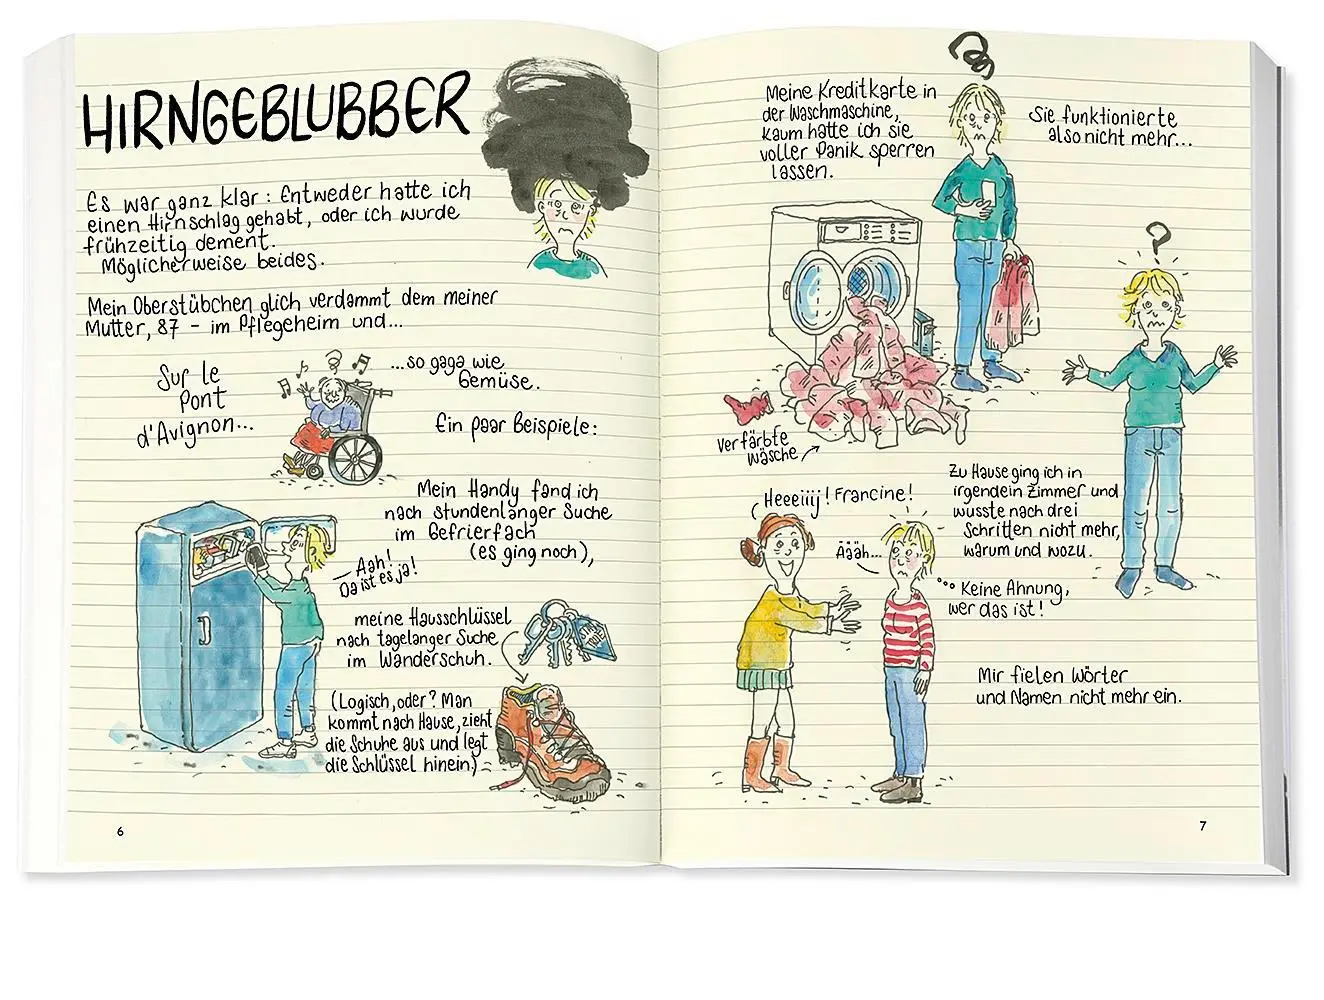 HIRNGEBLUBBER
Es war ganz klar: Entweder hatte ich
einen Hirnschlag gehabt, oder ich wurde
frühzeitig dement.
Möglicherweise beides.
Mein Oberstübchen glich verdammt dem meiner
Mutter, 87 – im Pflegeheim und...
Sur le
Pont
d'Avignon...
...so gaga wie
Gemüse.
Ein paar Beispiele:
Mein Handy fand ich
nach stundenlanger Suche
im Gefrierfach
(es ging noch),
Aah!
Da ist es ja!
meine Hausschlüssel
nach tagelanger Suche
im Wanderschuh.
(Logisch, oder? Man
kommt nach Hause, zieht
die Schuhe aus und legt
die Schlüssel hinein.)
6
Meine Kreditkarte in
der Waschmaschine,
kaum hatte ich sie
voller Panik sperren
lassen.
Sie funktionierte
also nicht mehr...
verfärbte
Wäsche
Zu Hause ging ich in
irgendein Zimmer und
wusste nach drei
Schritten nicht mehr,
warum und wozu.
Heeeiiij! Francine!
Äääh...
Keine Ahnung,
wer das ist!
Mir fielen Wörter
und Namen nicht mehr ein.
7